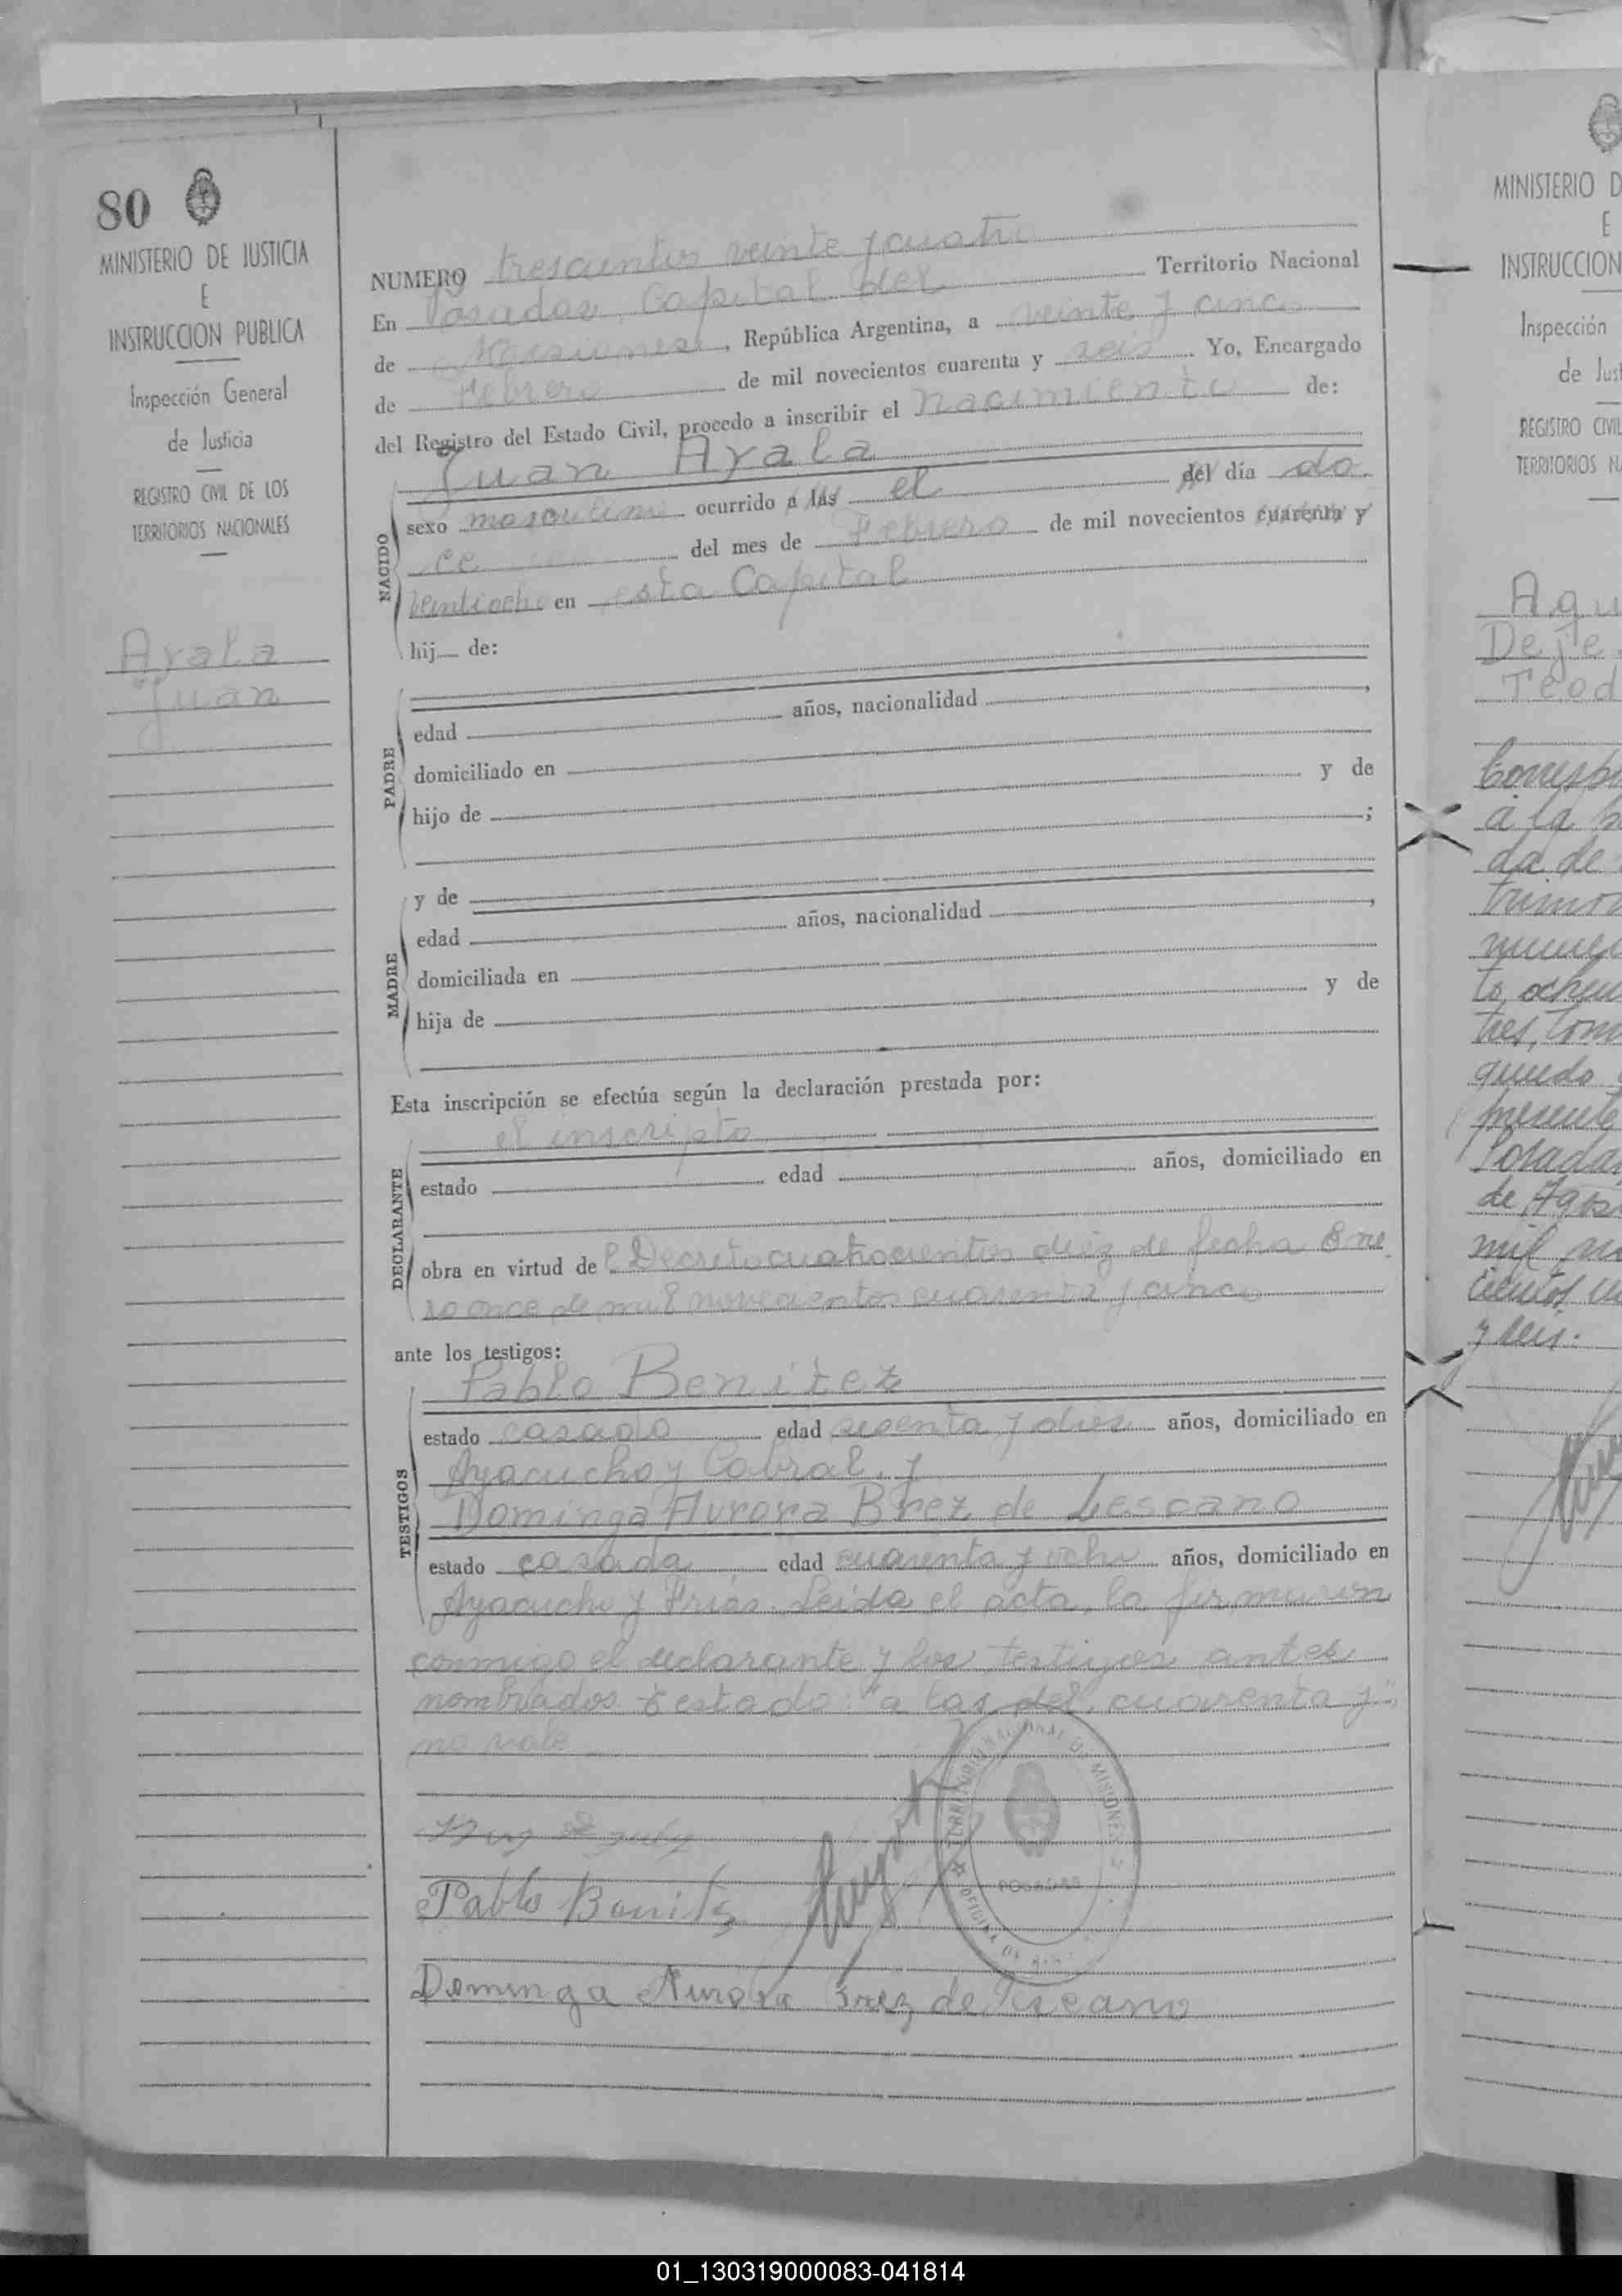 80
MINISTERIO DE JUSTICIA
E
INSTRUCCION PUBLICA
Inspección General
de Justicia
REGISTRO CIVIL DE LOS
TERRITORIOS NACIONALES
Ayala
Juan
NUMERO trescientos veinte y cuatro
En Posadas, Capital del Territorio Nacional
de Misiones, República Argentina, a veinte y cinco
de Febrero de mil novecientos cuarenta y seis. Yo, Encargado
del Registro del Estado Civil, procedo a inscribir el nacimiento de:
Juan Ayala
NACIDO
sexo masculino ocurrido a las el del día do
ce del mes de Febrero de mil novecientos cuarenta y
veintiocho en esta Capital
hij de:
PADRE
edad años, nacionalidad ,
domiciliado en
hijo de y de
;
MADRE
y de
edad años, nacionalidad ,
domiciliada en
hija de y de
Esta inscripción se efectúa según la declaración prestada por:
el inscripto
DECLARANTE
estado edad años, domiciliado en
obra en virtud del Decreto cuatrocientos diez de fecha Ene
ro once de mil novecientos cuarenta y cinco
ante los testigos:
Pablo Benitez
TESTIGOS
estado casado edad años, domiciliado en
Ayacucho y Cabral, y
Dominga Aurora Bnez de Lescano
estado casada edad cuarenta y ocho años, domiciliado en
Ayacucho y Frías. Leída el acta, la firmaron
conmigo el declarante y los testigos antes
nombrados. testado: "a las, del, cuarenta y",
no vale
Pablo Benitz
POSADAS
Dominga Aurora Bnez de Lescano
MINISTERIO D
E
INSTRUCCION
Inspección
de Just
REGISTRO CIVIL
TERRITORIOS N
Agu
Deje
Teod
Corresp
a la
da de
trimon
numer
to ochen
tres, tom
quedo
presente
Posadas
de Agos
mil no
cientos
y seis.
01_130319000083-041814